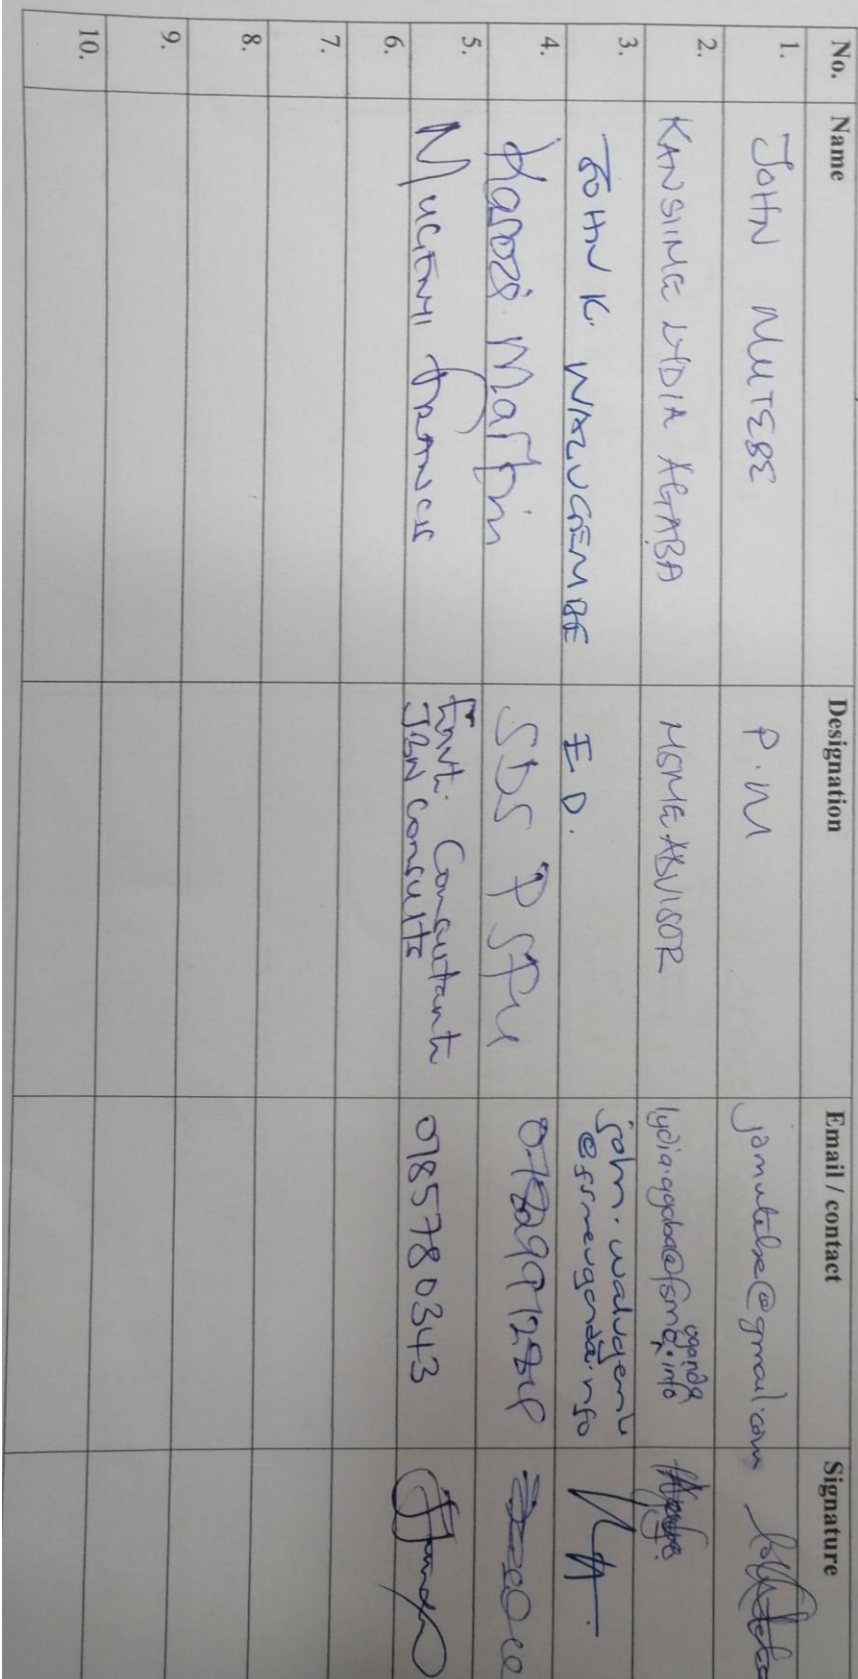 No. Name Designation Email / contact Signature
1. JOHN MUTEBE P.M jamutebe@gmail.com
2. KANSIIME LYDIA AGABA MSME ADVISOR lydia.agaba@fsme.info
uganda
3. JOHN K. WALUGEMBE E D. john.walugembe
@fsmeuganda.info
4. Kaddzi Martin SDS PSFU
5. MUGENYI FRANCIS Envt. Consultant 0785780343
JBN Consults
6.
7.
8.
9.
10.